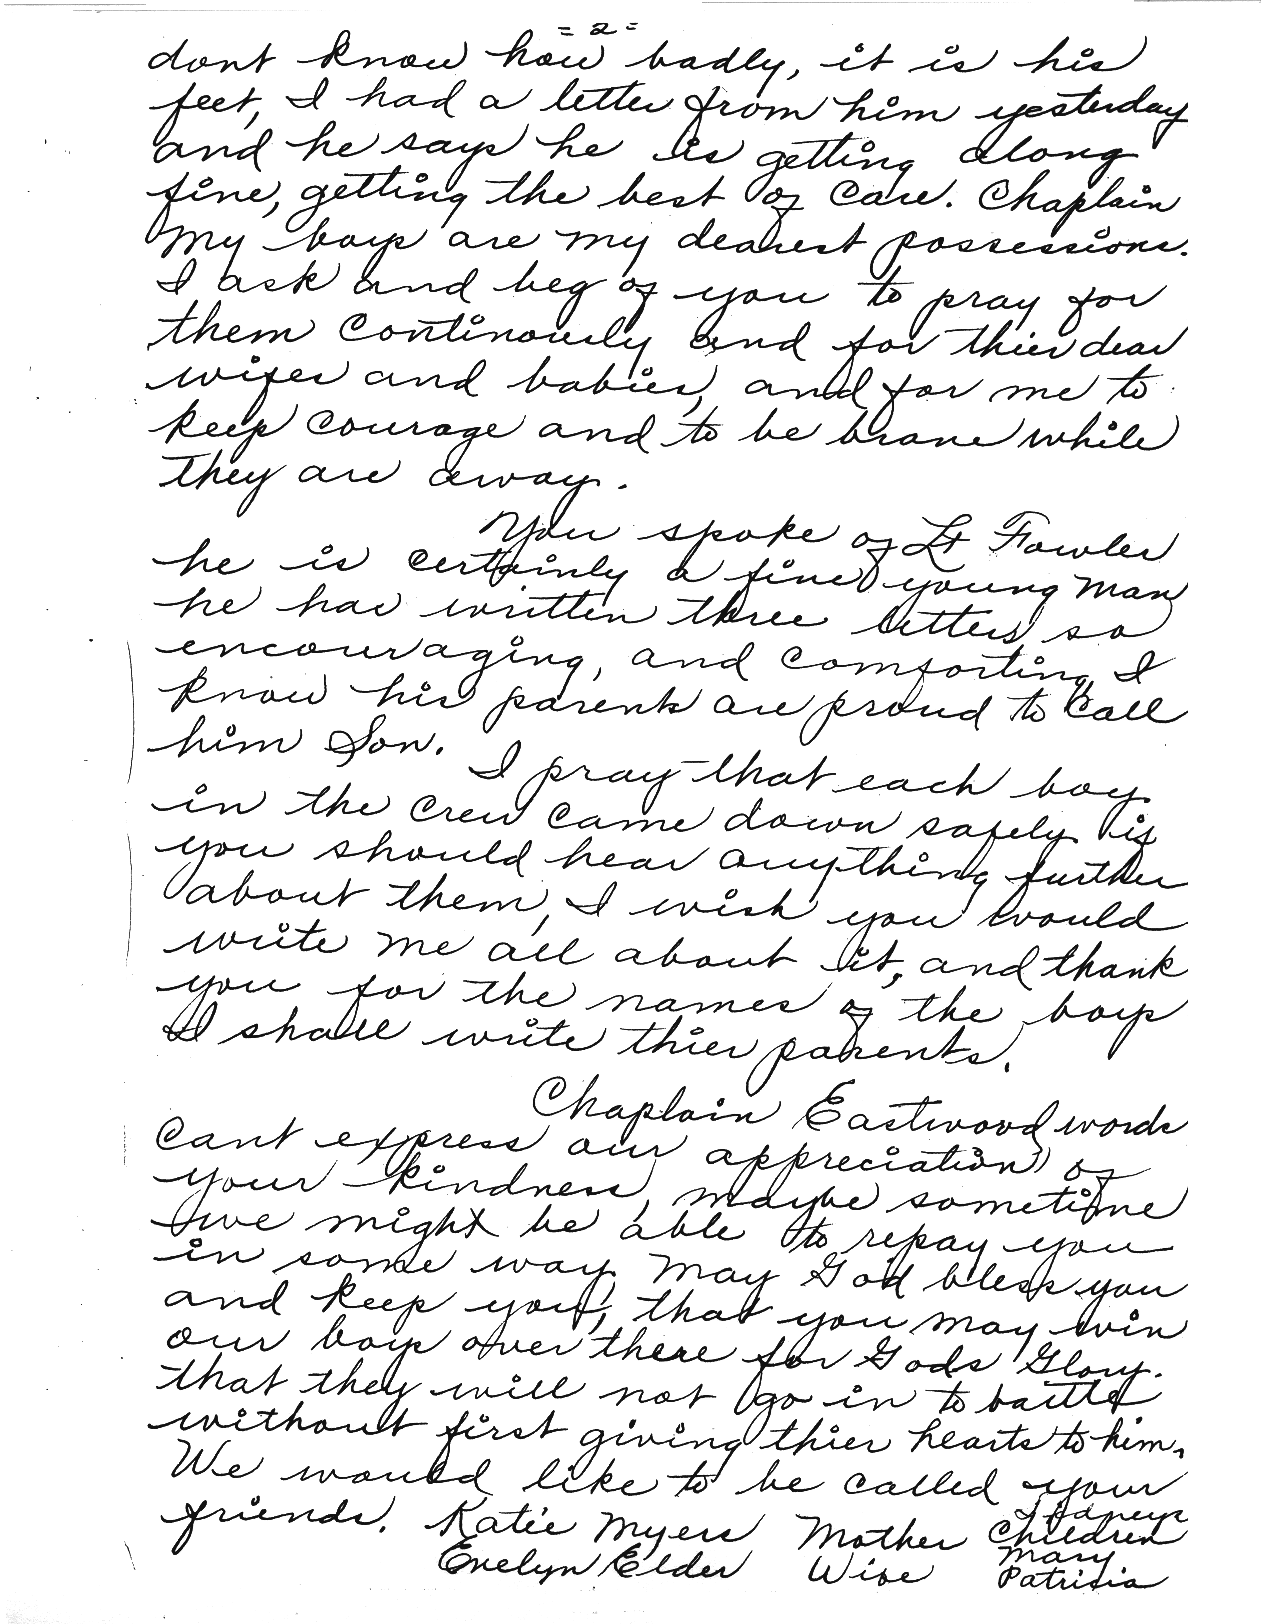 = 2 =
dont know how badly, it is his
feet, I had a letter from him yesterday
and he says he is getting along
fine, getting the best of care. Chaplain
My boys are my dearest possessions.
I ask and beg of you to pray for
them continously and for thier dear
wifes and babies, and for me to
keep courage and to be brave while
they are away.
You spoke of Lt Fowler
he is certainly a fine young man
he has written three letters so
encouraging, and comforting, I
know his parents are proud to call
him Son.
I pray that each boy
in the crew came down safely if
you should hear anything further
about them, I wish you would
write me all about it, and thank
you for the names of the boys
I shall write thier parents.
Chaplain Eastwood words
cant express our appreciation of
your kindness, maybe sometime
we might be able to repay you
in some way. May God bless you
and keep you, that you may win
our boys over there for Gods Glory.
that they will not go in to battle
without first giving thier hearts to him.
We would like to be called your
friends. Katie Myers Mother
Evelyn Elder Wife
Children
Mary
Patrisia